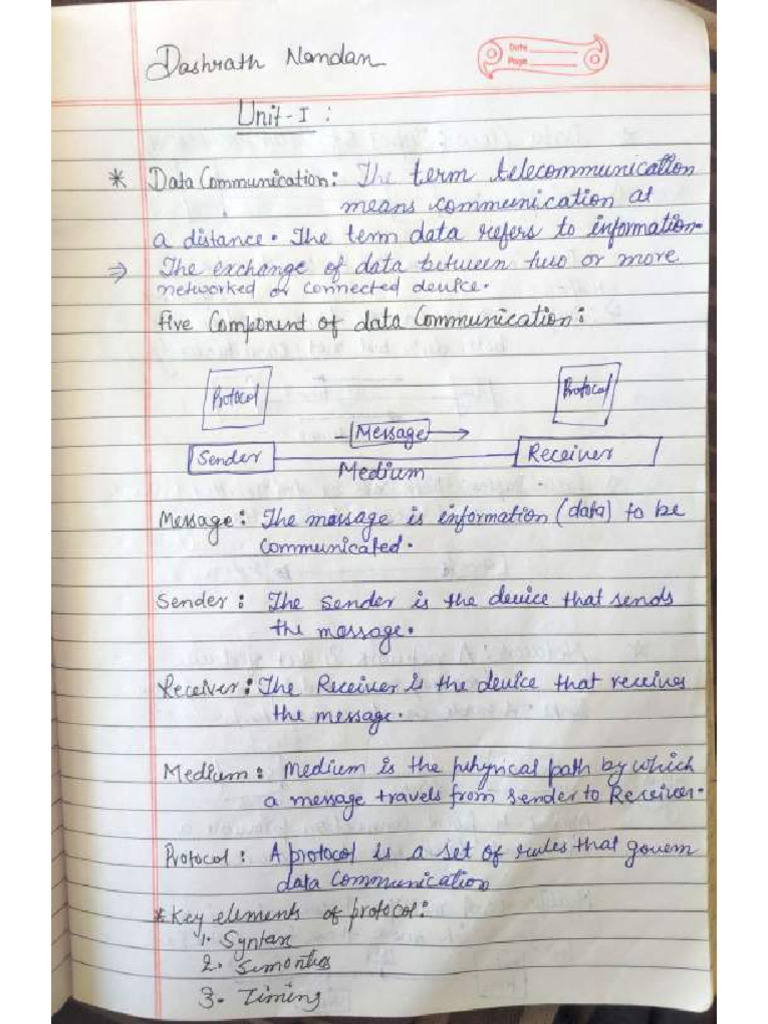 Dashrath Nandan
Date
Page
Unit-I :
* Data Communication: The term telecommunication
means communication at
a distance. The term data refers to information.
⇒ The exchange of data between two or more
networked or connected device.
five Component of data Communication:
Protocol
Protocol
Message
Sender
Receiver
Medium
Message: The message is information (data) to be
communicated.
Sender: The sender is the device that sends
the message.
Receiver: The Receiver is the device that receives
the message.
Medium: Medium is the phyrical path by which
a message travels from sender to Receiver.
Protocol: A protocol is a set of rules that govern
data Communication
* Key elements of protocol:
1. Syntax
2. Simontics
3. Timing